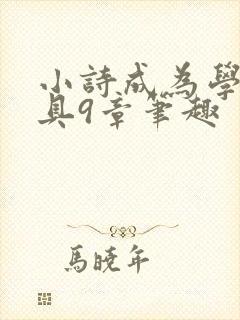 小詩成為學
具9章筆趣
馬曉年